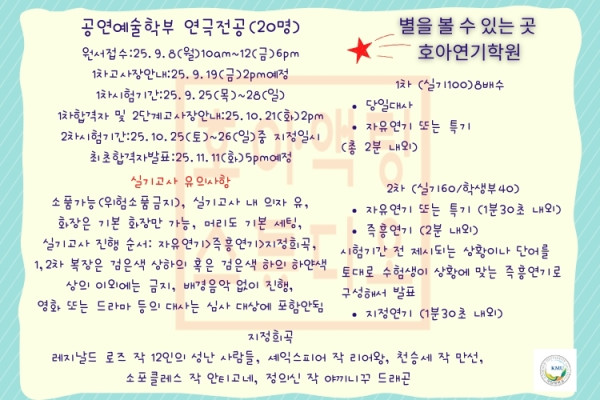 공연예술학부 연극전공(20명)
원서접수:25. 9. 8(월)10am~12(금)6pm
1차고사장안내:25. 9.19(금)2pm예정
1차시험기간:25. 9.25(목)~28(일)
1차합격자 및 2단계고사장안내:25. 10.21(화)2pm
2차시험기간:25. 10.25(토)~26(일)중 지정일시
최초합격자발표:25. 11.11(화)5pm예정
실기고사 유의사항
소품가능(위험소품금지), 실기고사 내 의자 유,
화장은 기본 화장만 가능, 머리도 기본 세팅,
실기고사 진행 순서: 자유연기>즉흥연기>지정희곡,
1,2차 복장은 검은색 상하의 혹은 검은색 하의 하얀색
상의 이외에는 금지, 배경음악 없이 진행,
영화 또는 드라마 등의 대사는 심사 대상에 포함안됨
별을 볼 수 있는 곳
호아연기학원
1차 (실기100)8배수
• 당일대사
• 자유연기 또는 특기
(총 2분 내외)
2차 (실기60/학생부40)
• 자유연기 또는 특기 (1분30초 내외)
• 즉흥연기 (2분 내외)
시험기간 전 제시되는 상황이나 단어를
토대로 수험생이 상황에 맞는 즉흥연기로
구성해서 발표
• 지정연기 (1분30초 내외)
지정희곡
레지날드 로즈 작 12인의 성난 사람들, 셰익스피어 작 리어왕, 천승세 작 만선,
소포클레스 작 안티고네, 정의신 작 야끼니꾸 드래곤
호아액팅
스튜디오